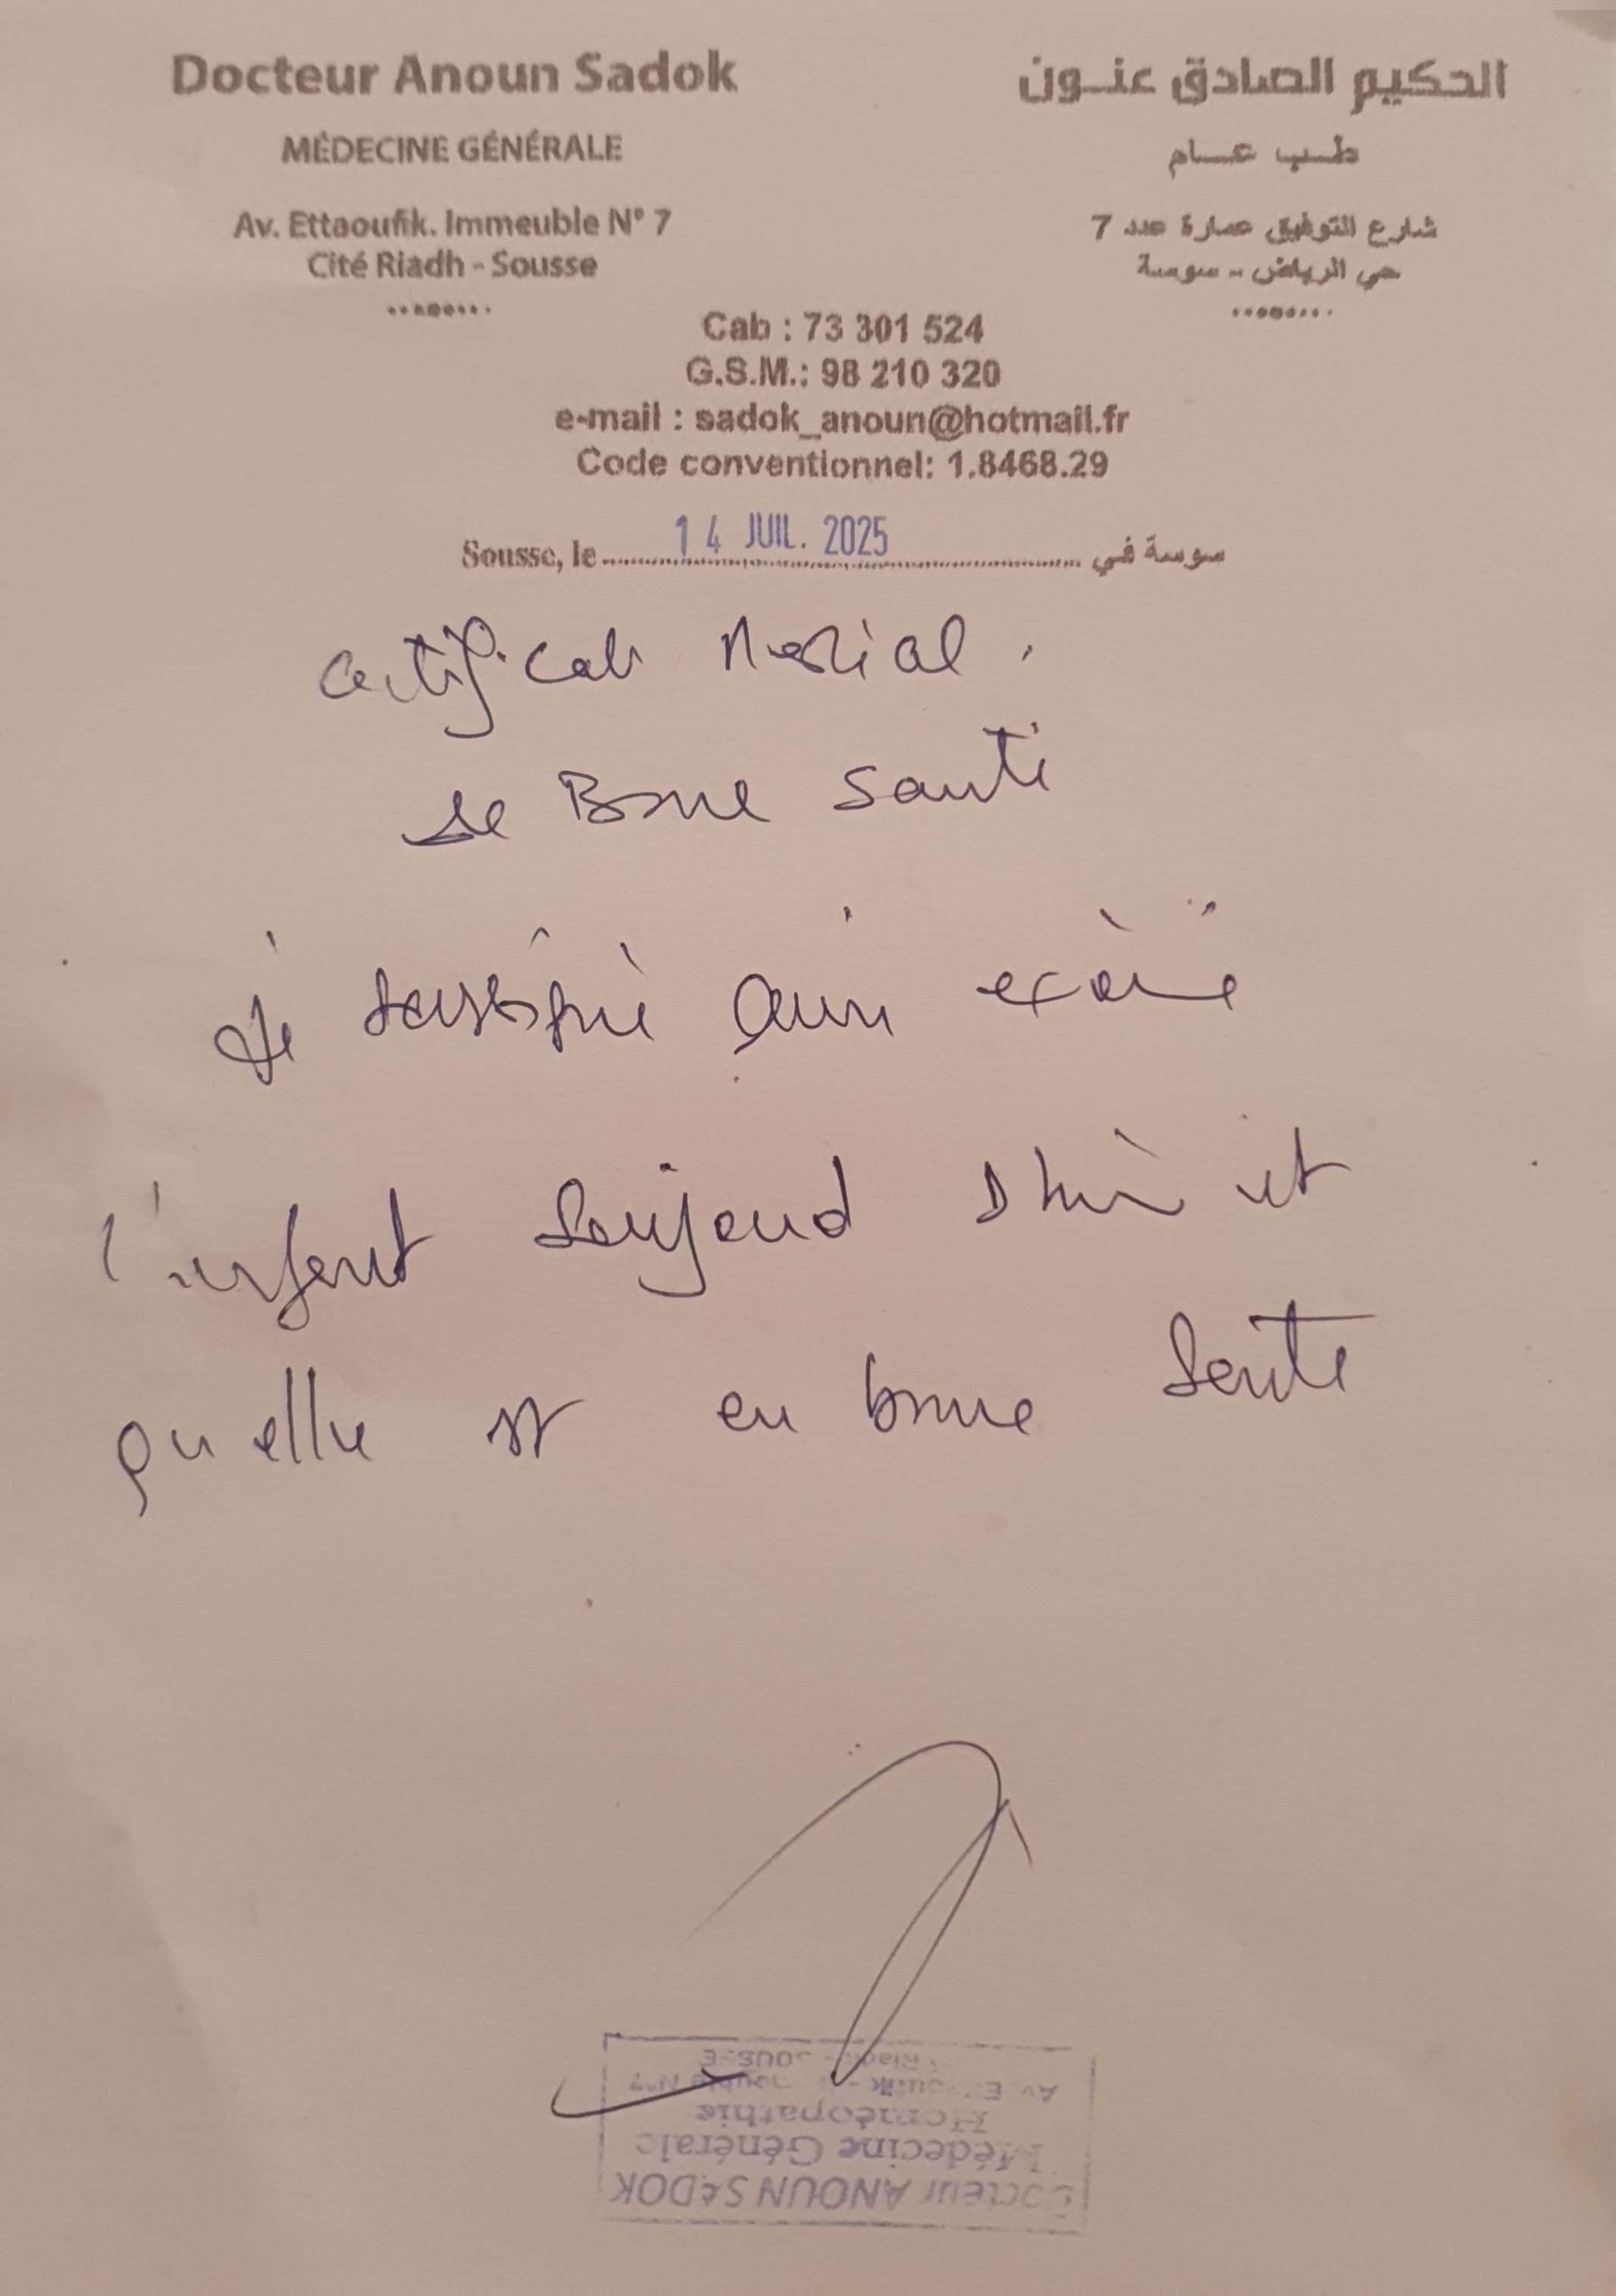 Docteur Anoun Sadok
MÉDECINE GÉNÉRALE
Av. Ettaoufik. Immeuble N° 7
Cité Riadh - Sousse
الحكيم الصادق عنــون
طــب عــــام
شارع التوفيق عمارة عدد 7
حي الرياض - سوسة
Cab : 73 301 524
G.S.M.: 98 210 320
e-mail : sadok_anoun@hotmail.fr
Code conventionnel: 1.8468.29
Sousse, le 14 JUIL. 2025 سوسة في
Certificat Medical
de Bonne Santé
Je soussigné avoir examiné
l'enfant et
qu'elle est en bonne santé
Docteur ANOUN SADOK
Médecine Générale
Homéopathie